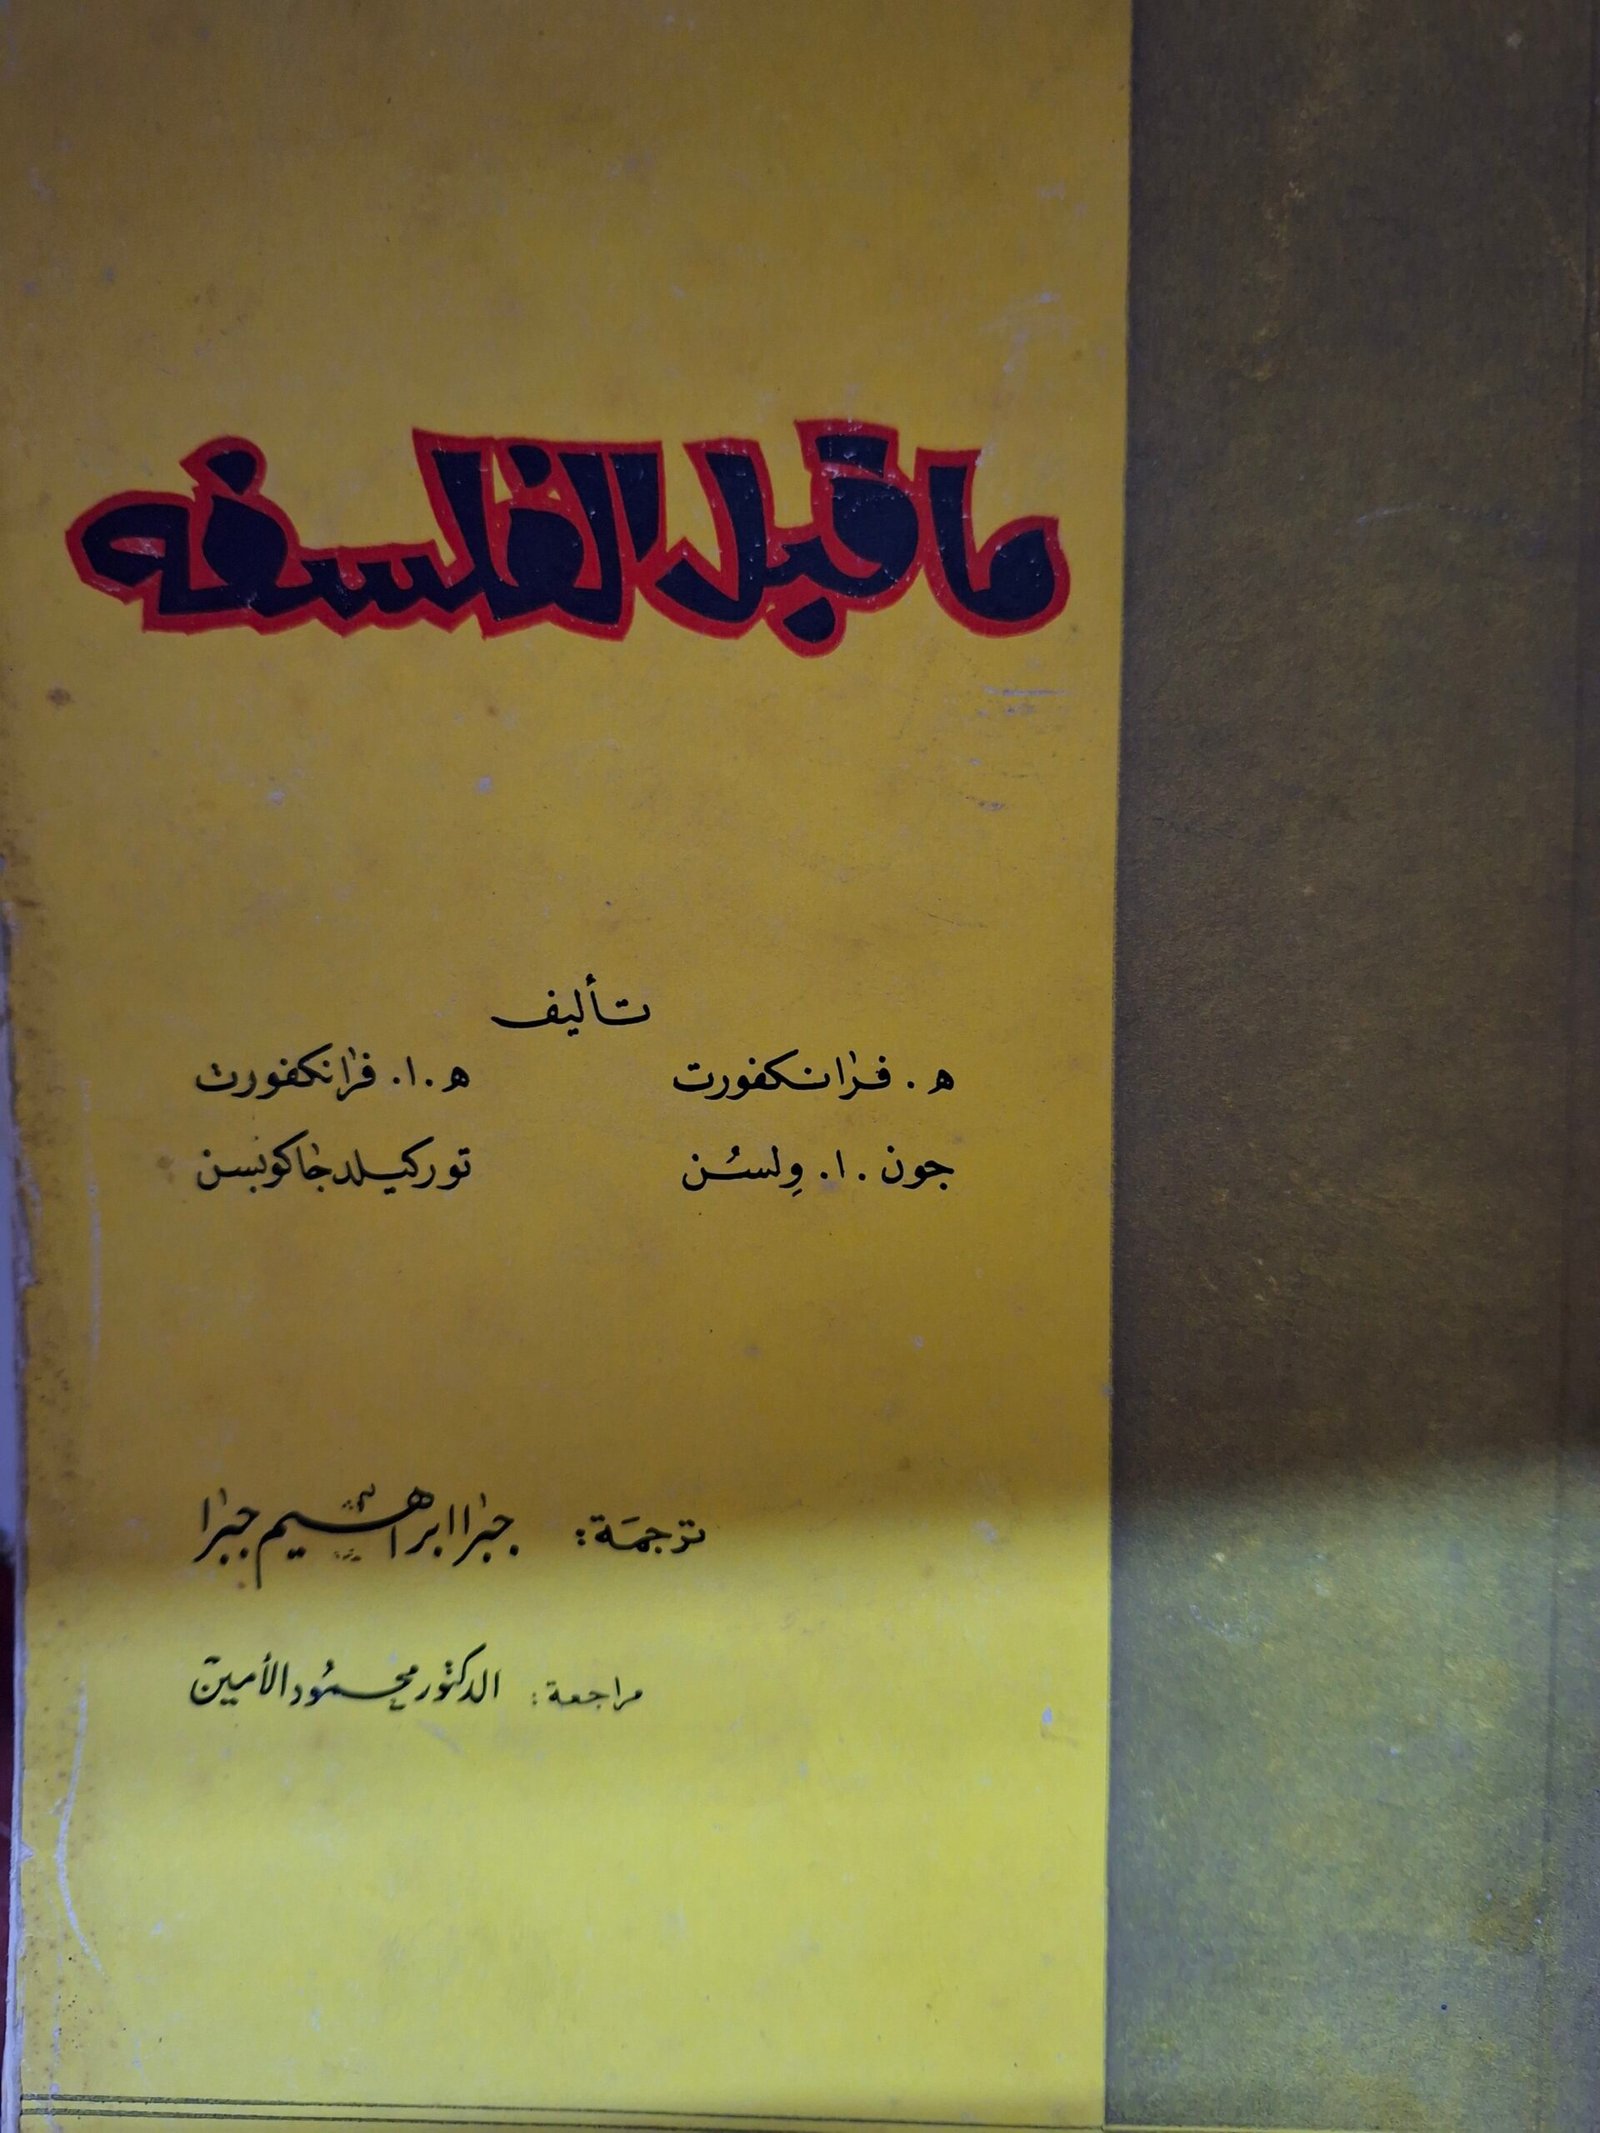 ما قبل الفلسفه
تأليف
ه. فرانكفورت ه. ا. فرانكفورت
جون. ا. وِلسُن توركيلد جاكوبسن
ترجمَة: جبرا ابراهيم جبرا
مراجعة: الدكتور محمُود الأمين